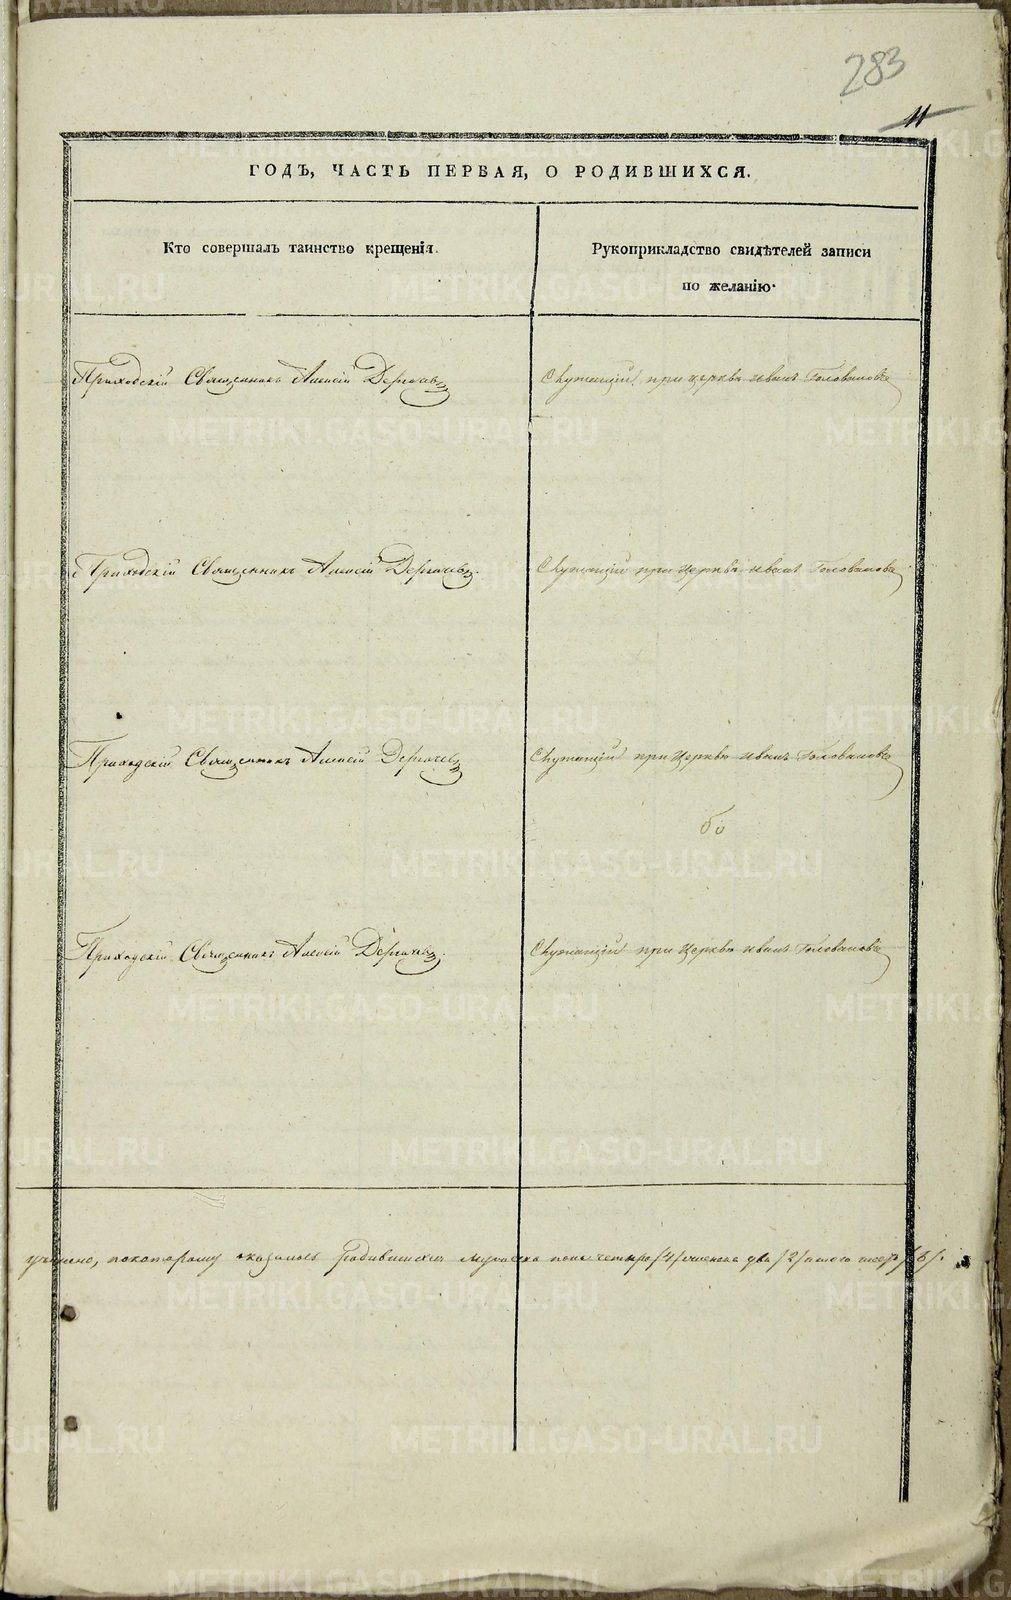 283
11
ГОДЪ, ЧАСТЬ ПЕРВАЯ, О РОДИВШИХСЯ.
Кто совершалъ таинство крещенія.
Рукоприкладство свидѣтелей записи
по желанію.
Приходскій Священникъ Алексій Дергачевъ
Служащій при церкви Иванъ Головановъ
Приходскій Священникъ Алексій Дергачевъ.
Служащій при Церкви Иванъ Головановъ
Приходскій Священникъ Алексій Дергачевъ
Служащій при Церкви Иванъ Головановъ
Приходскій Священникъ Алексій Дергачевъ.
Служащій при Церкви Иванъ Головановъ
учинено, покоторому оказалось родившихся мужеска пола четыре /4/ женска два /2/ шесть /6/.
METRIKI.GASO-URAL.RU